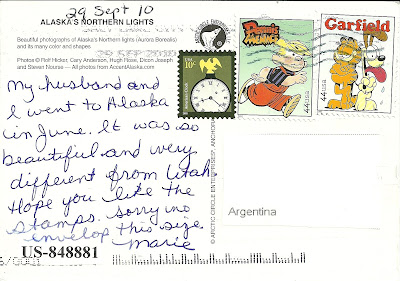 29 Sept 10
ALASKA'S NORTHERN LIGHTS
Beautiful photographs of Alaska's Northern lights (Aurora Borealis)
and its many color and shapes
Photos © Rolf Hicker, Cary Anderson, Hugh Rose, Dixon Joseph
and Steven Nourse — All photos from AccentAlaska.com
My husband and
I went to Alaska
in June. It was so
beautiful and very
different from Utah.
Hope you like the
stamps. sorry no
envelop this size
Marie
US-848881
USA
10¢
Dennis
the
MENACE
44 USA
Garfield
44 USA
Argentina
© ARCTIC CIRCLE ENTERPRISES